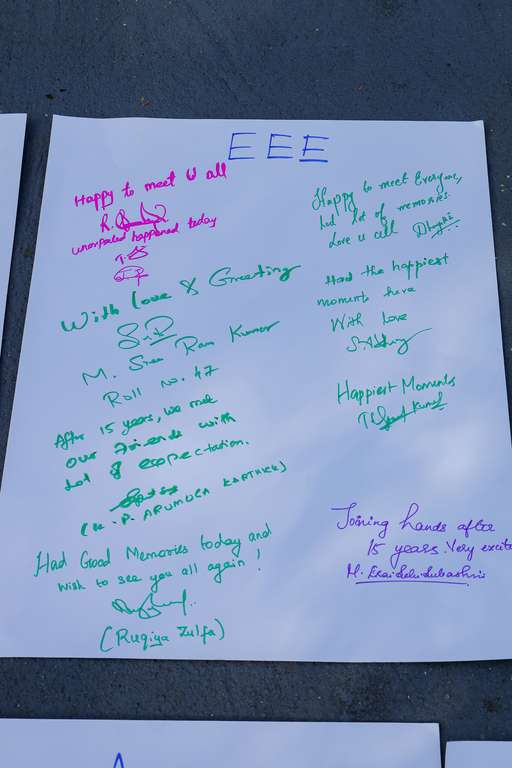 EEE
Happy to meet U all
R.
unexpected happened today
With love & Greeting
M. Sree Ram Kumar
Roll no. 47
After 15 years, we met
our friends with
Lot of expectation.
(M. P. ARUMUGA KARTHICK)
Had Good Memories today and
wish to see you all again!
(Ruqiya Zulfa)
Happy to meet Everyone,
had lot of memories
Love u all
Had the happiest
moments here
With love
Happiest Moments
Joining hands after
15 years. Very excite
M.